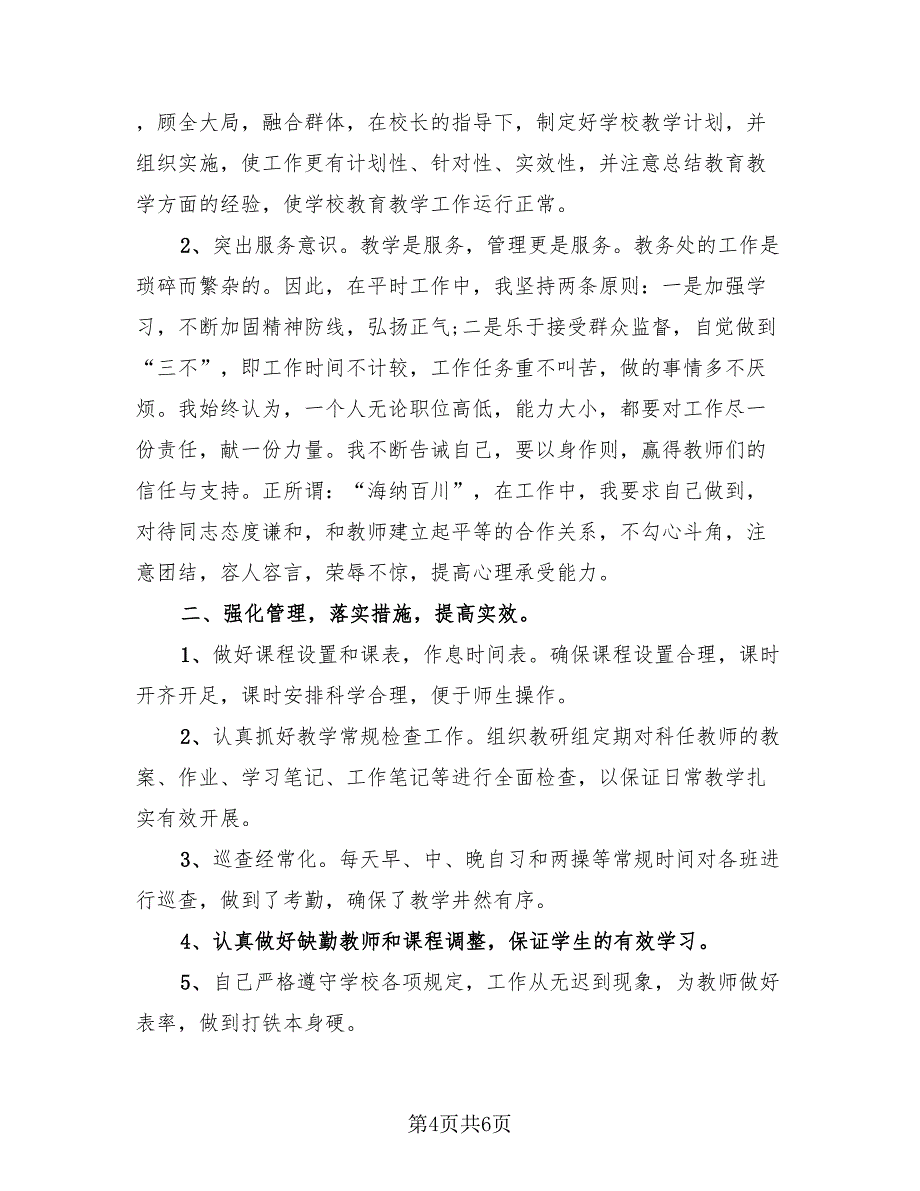 ，顾全大局，融合群体，在校长的指导下，制定好学校教学计划，并
组织实施，使工作更有计划性、针对性、实效性，并注意总结教育教
学方面的经验，使学校教育教学工作运行正常。
2、突出服务意识。教学是服务，管理更是服务。教务处的工作是
琐碎而繁杂的。因此，在平时工作中，我坚持两条原则：一是加强学
习，不断加固精神防线，弘扬正气;二是乐于接受群众监督，自觉做到
“三不”，即工作时间不计较，工作任务重不叫苦，做的事情多不厌
烦。我始终认为，一个人无论职位高低，能力大小，都要对工作尽一
份责任，献一份力量。我不断告诫自己，要以身作则，赢得教师们的
信任与支持。正所谓：“海纳百川”，在工作中，我要求自己做到，
对待同志态度谦和，和教师建立起平等的合作关系，不勾心斗角，注
意团结，容人容言，荣辱不惊，提高心理承受能力。
二、强化管理，落实措施，提高实效。
1、做好课程设置和课表，作息时间表。确保课程设置合理，课时
开齐开足，课时安排科学合理，便于师生操作。
2、认真抓好教学常规检查工作。组织教研组定期对科任教师的教
案、作业、学习笔记、工作笔记等进行全面检查，以保证日常教学扎
实有效开展。
3、巡查经常化。每天早、中、晚自习和两操等常规时间对各班进
行巡查，做到了考勤，确保了教学井然有序。
4、认真做好缺勤教师和课程调整，保证学生的有效学习。
5、自己严格遵守学校各项规定，工作从无迟到现象，为教师做好
表率，做到打铁本身硬。
第4页共6页